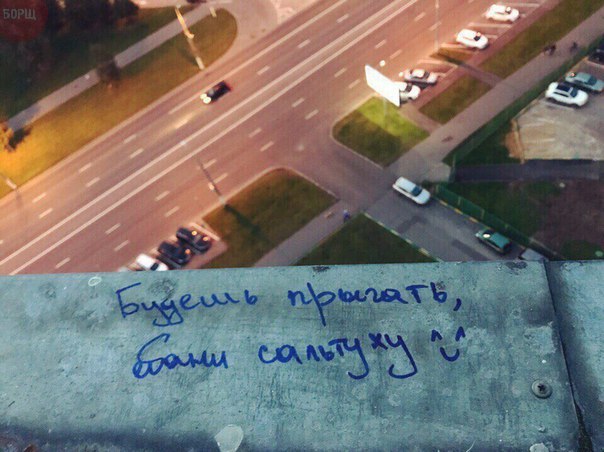 БОРЩ
Будешь прыгать,
ебани сальтуху ^◡^